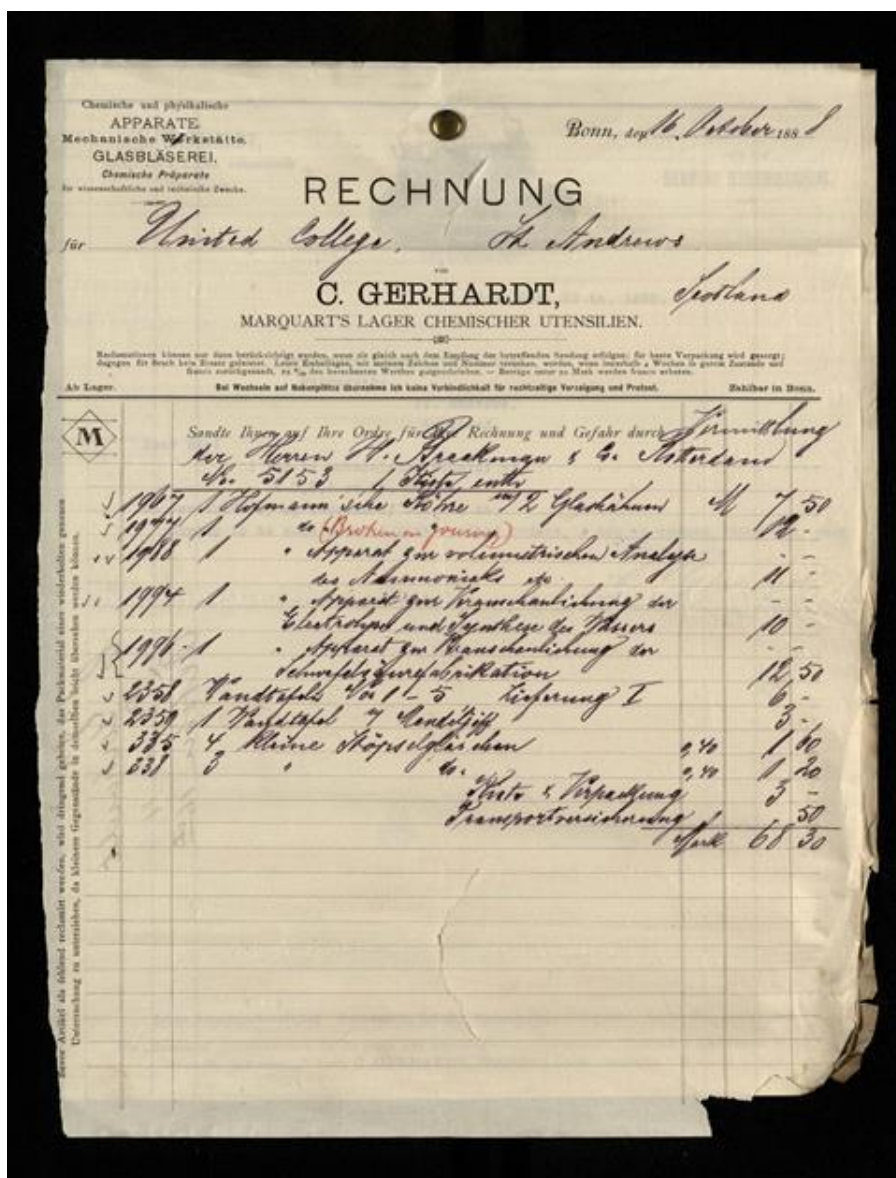 Chemische und physikalische
APPARATE
Mechanische Werkstätte,
GLASBLÄSEREI,
Chemische Präparate
für wissenschaftliche und technische Zwecke.
Bonn, den 16. October 1888
RECHNUNG
für United College, St Andrews
von
C. GERHARDT, Scotland
MARQUART'S LAGER CHEMISCHER UTENSILIEN.
Reclamationen können nur dann berücksichtigt werden, wenn sie gleich nach dem Empfang der betreffenden Sendung erfolgen; für beste Verpackung wird gesorgt;
dagegen für Bruch kein Ersatz geleistet. Leere Emballagen, mit meinem Zeichen und Nummer versehen, werden, wenn innerhalb 4 Wochen in gutem Zustande und
franco zurückgesandt, zu des berechneten Werthes gutgeschrieben. — Beträge unter 20 Mark werden franco erbeten.
Ab Lager. Bei Wechseln auf Nebenplätze übernehme ich keine Verbindlichkeit für rechtzeitige Vorzeigung und Protest. Zahlbar in Bonn.
M
Sandte Ihnen auf Ihre Ordre für Ihre Rechnung und Gefahr durch Vermittlung
der Herren Rotterdam
No. 5153 1 Kiste enth
1967 1 Hofmann'sche Röhre m/2 Glashähnen M 7 50
1977 1 do (Broken on journey) 12 -
1988 1 " Apparat zur volumetrischen Analyse - -
des Ammoniaks etc. 11 -
1994 1 " Apparat zur Veranschaulichung der - -
Electrolyse und Synthese des Wassers 10 -
1996 - 1 " Apparat zur Veranschaulichung der - -
Schwefelsäurefabrikation 12 50
2358 Wandtafeln No 1 - 5 Lieferung I 6 -
2359 1 Wandtafel 3 -
335 4 kleine Stöpselgläschen 0,40 1 60
338 3 " do. 0,40 1 20
Kiste & Verpackung 3 -
Transportversicherung 50
Mark 68 30
Bevor Artikel als fehlend reclamirt werden, wird dringend gebeten, das Packmaterial einer wiederholten genauen
Untersuchung zu unterziehen, da kleinere Gegenstände in demselben leicht übersehen werden können.